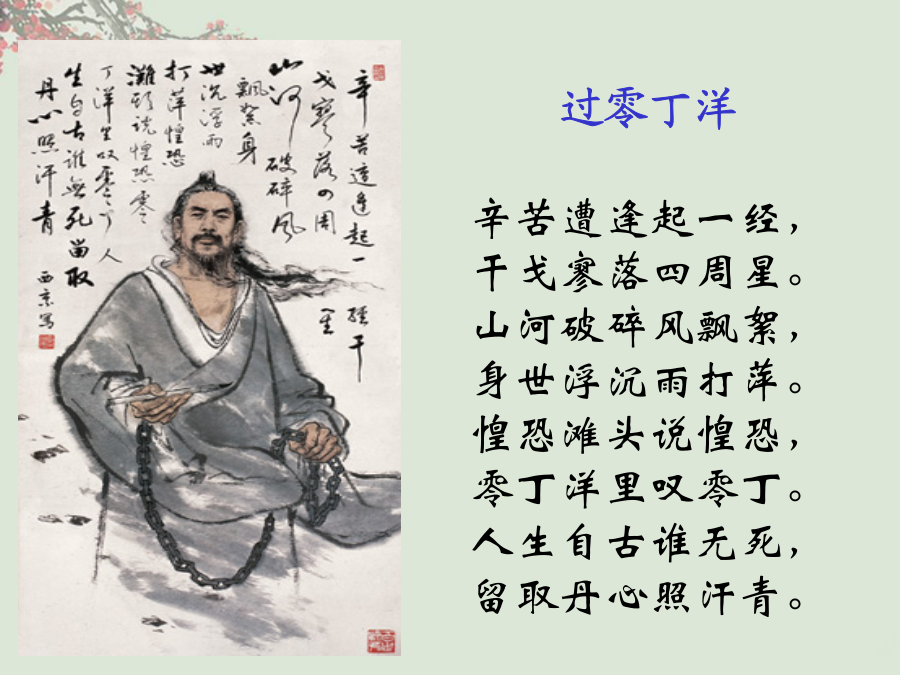 过零丁洋
辛苦遭逢起一经，
干戈寥落四周星。
山河破碎风飘絮，
身世浮沉雨打萍。
惶恐滩头说惶恐，
零丁洋里叹零丁。
人生自古谁无死，
留取丹心照汗青。
辛苦遭逢起一經干
戈寥落四周星
山河破碎風
飄絮身
世沉浮雨
打萍惶恐
灘頭說惶恐零
丁洋里叹零丁人
生自古誰無死留取
丹心照汗青
西京寫